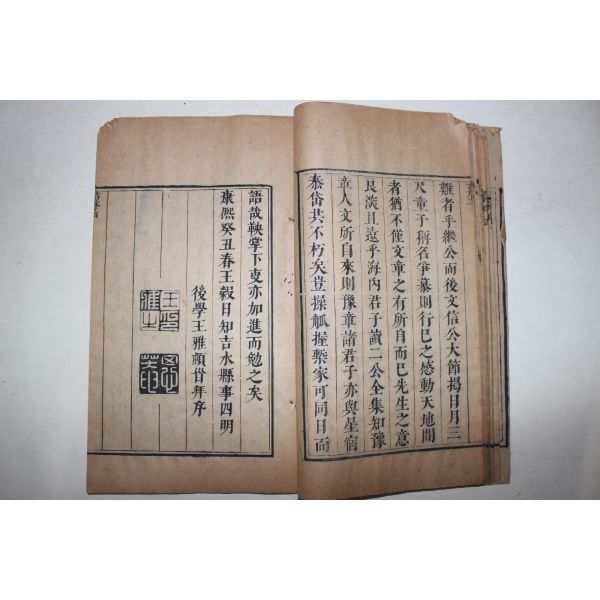 難者乎繼公而後文信公大節揭日月三
尺童子稱名爭慕則行已之感動天地間
者猶不僅文章之有所自而已先生之意
良深且遠乎海內君子讀二公全集知豫
章人文所自來則豫章諸君子亦與星宿
泰岱共不朽矣豈操觚握槧家可同日而
語哉鞅掌下吏亦加進而勉之矣
康熙癸丑春王穀日知吉水縣事四明
後學王雅頓首拜序